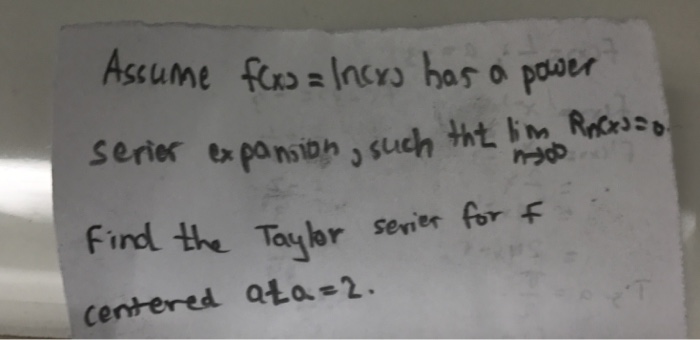 Assume f(x) = ln(x) has a power
series expansion, such tht lim n→∞ Rn(x) = 0
Find the Taylor series for f
centered at a = 2.